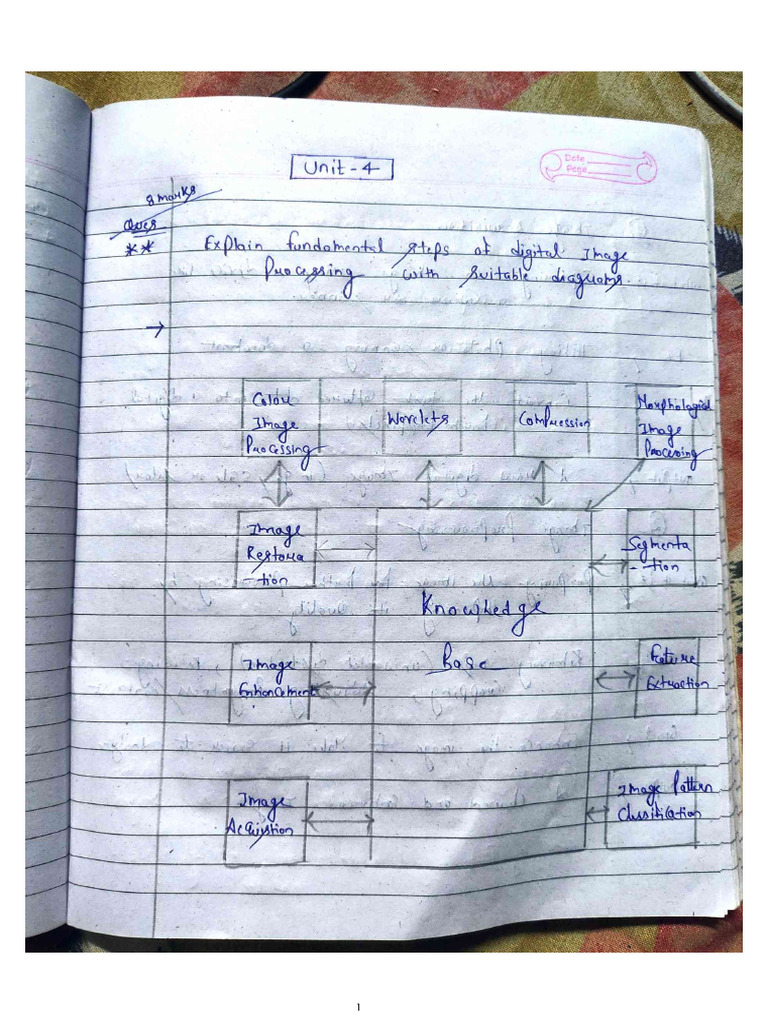 Unit - 4
Date
Page
8 marks
Ques
** Explain fundamental steps of digital Image
Processing with suitable diagrams.
→
Colou
Image
Processing
Wavelets
Compression
Morphological
Image
Processing
Image
Restora
-tion
Segmenta
-tion
Knowledge
Base
Image
Enhancement
Feture
Extraction
Image
Acquistion
Image Pattern
Classification
1